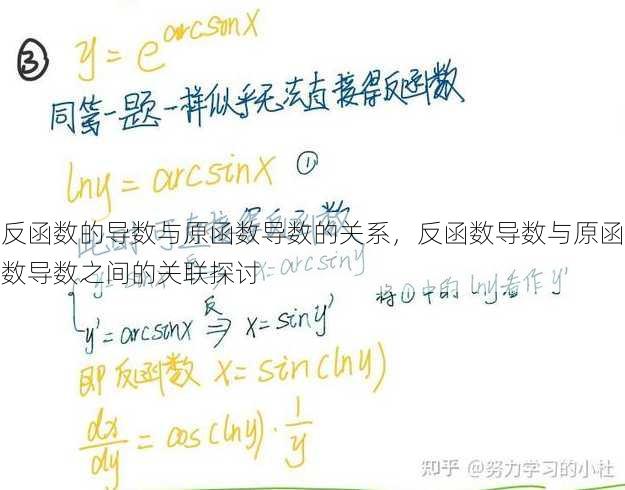 ③ y = e^arcsinx
同第一题一样似乎无法直接得反函数
lny = arcsinx ①
反函数的导数与原函数导数的关系，反函数导数与原函
数导数之间的关联探讨
x=arcsiny
y'=arcsinx 反⇒ x=siny' 将①中的lny看作y'
即反函数 x=sin(lny)
dx/dy = cos(lny)·1/y
知乎 @努力学习的小杜